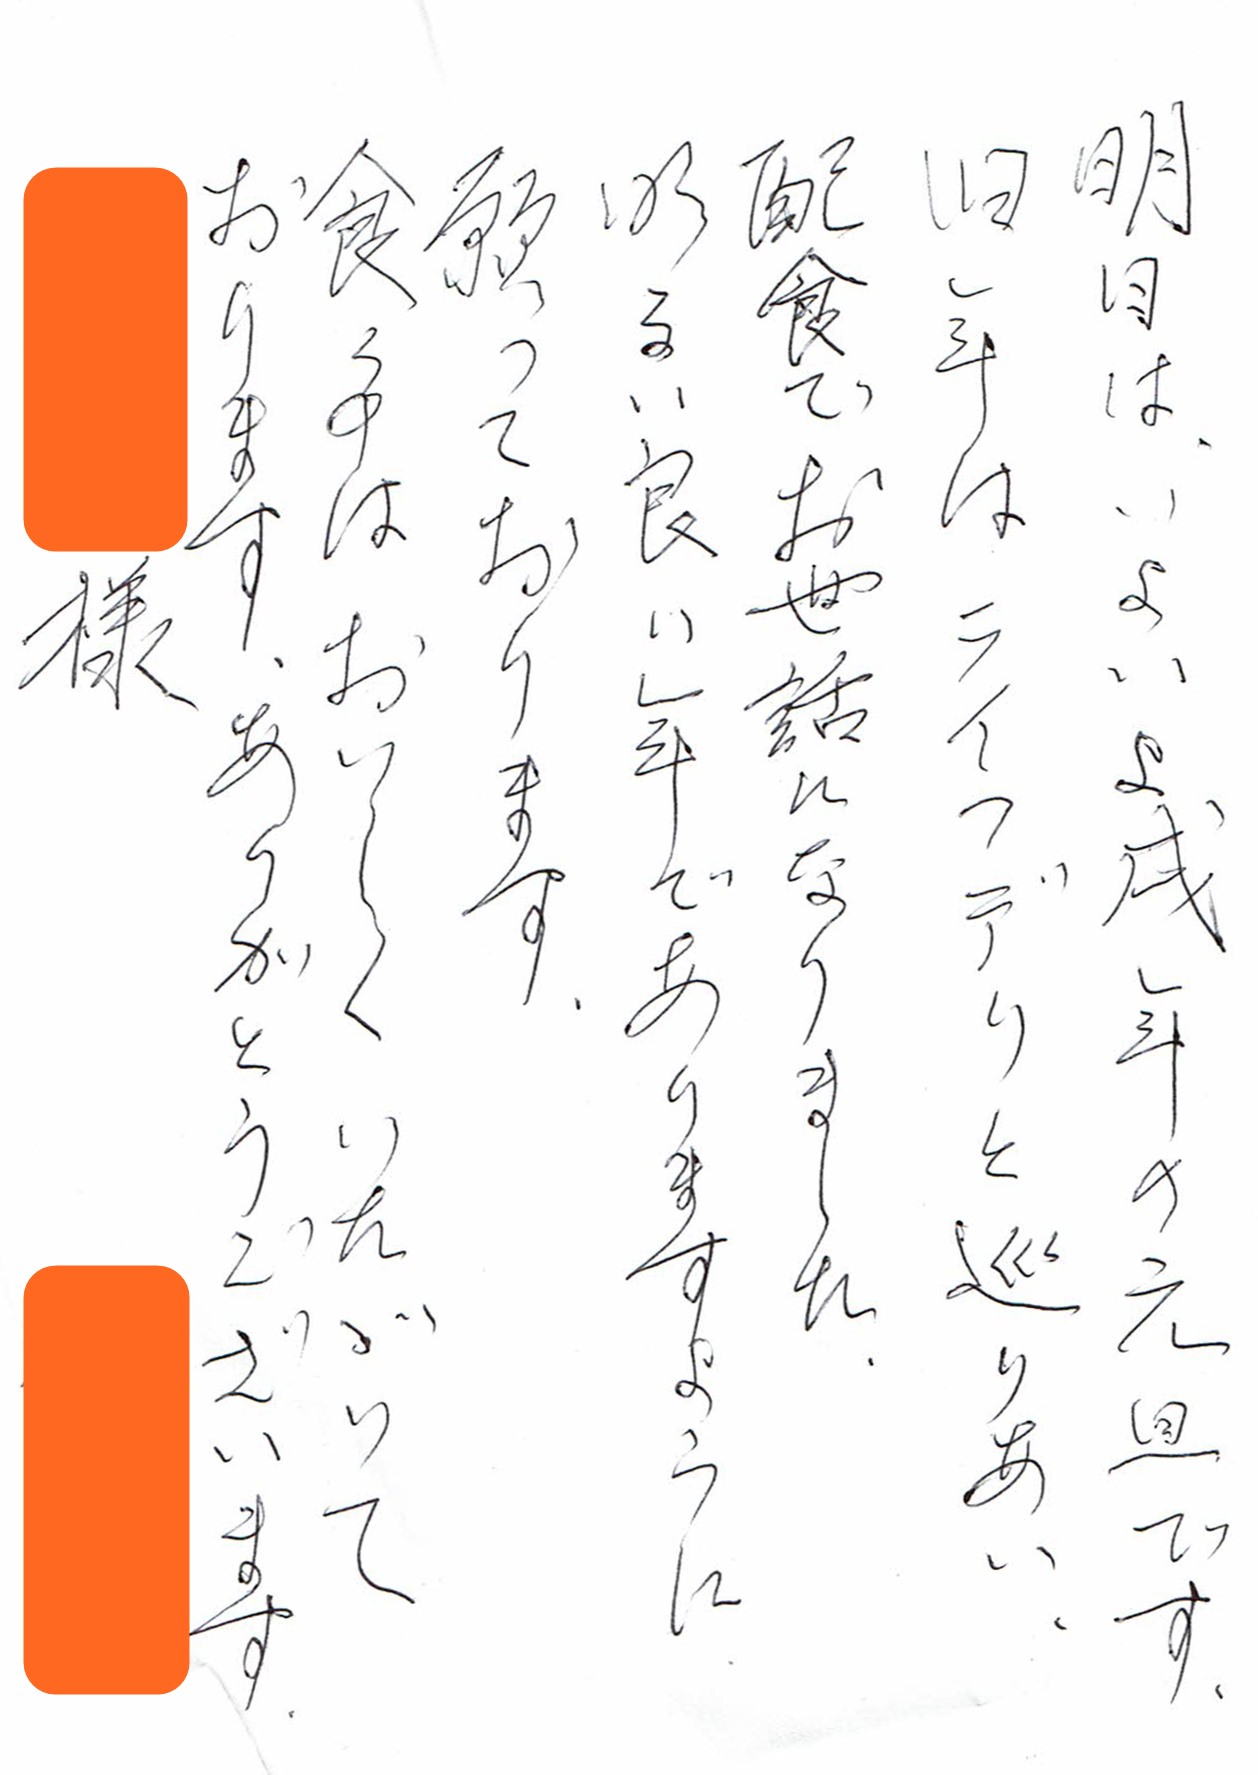 明日は、いよいよ戌年の元旦です、
旧年はライフデリと巡りあい、
配食でお世話になりました、
明るい良い年でありますように
願っております、
食事はおいしくいただいて
おります、ありがとうございます、
様